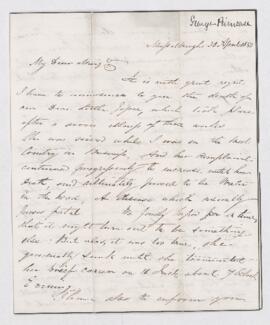 George Primrose
Musselburgh 28 April 1853
My Dear Craig
It is with great regret
I have to announce to you the death of
our Dear little Jessie, which took place
after a severe illness of three weeks
She was seized while I was on the West
Country on Business, And her Complaint
continued progressively to increase until her
death, and ultimately proved to be Water
in the head, A disease which usually
proves fatal We fondly hoped for a time,
that it might turn out to be something
else. But alas, it was too true, she
generally sunk until she terminated
her brief career on about 7 o'clock
Evening
I have also to inform you